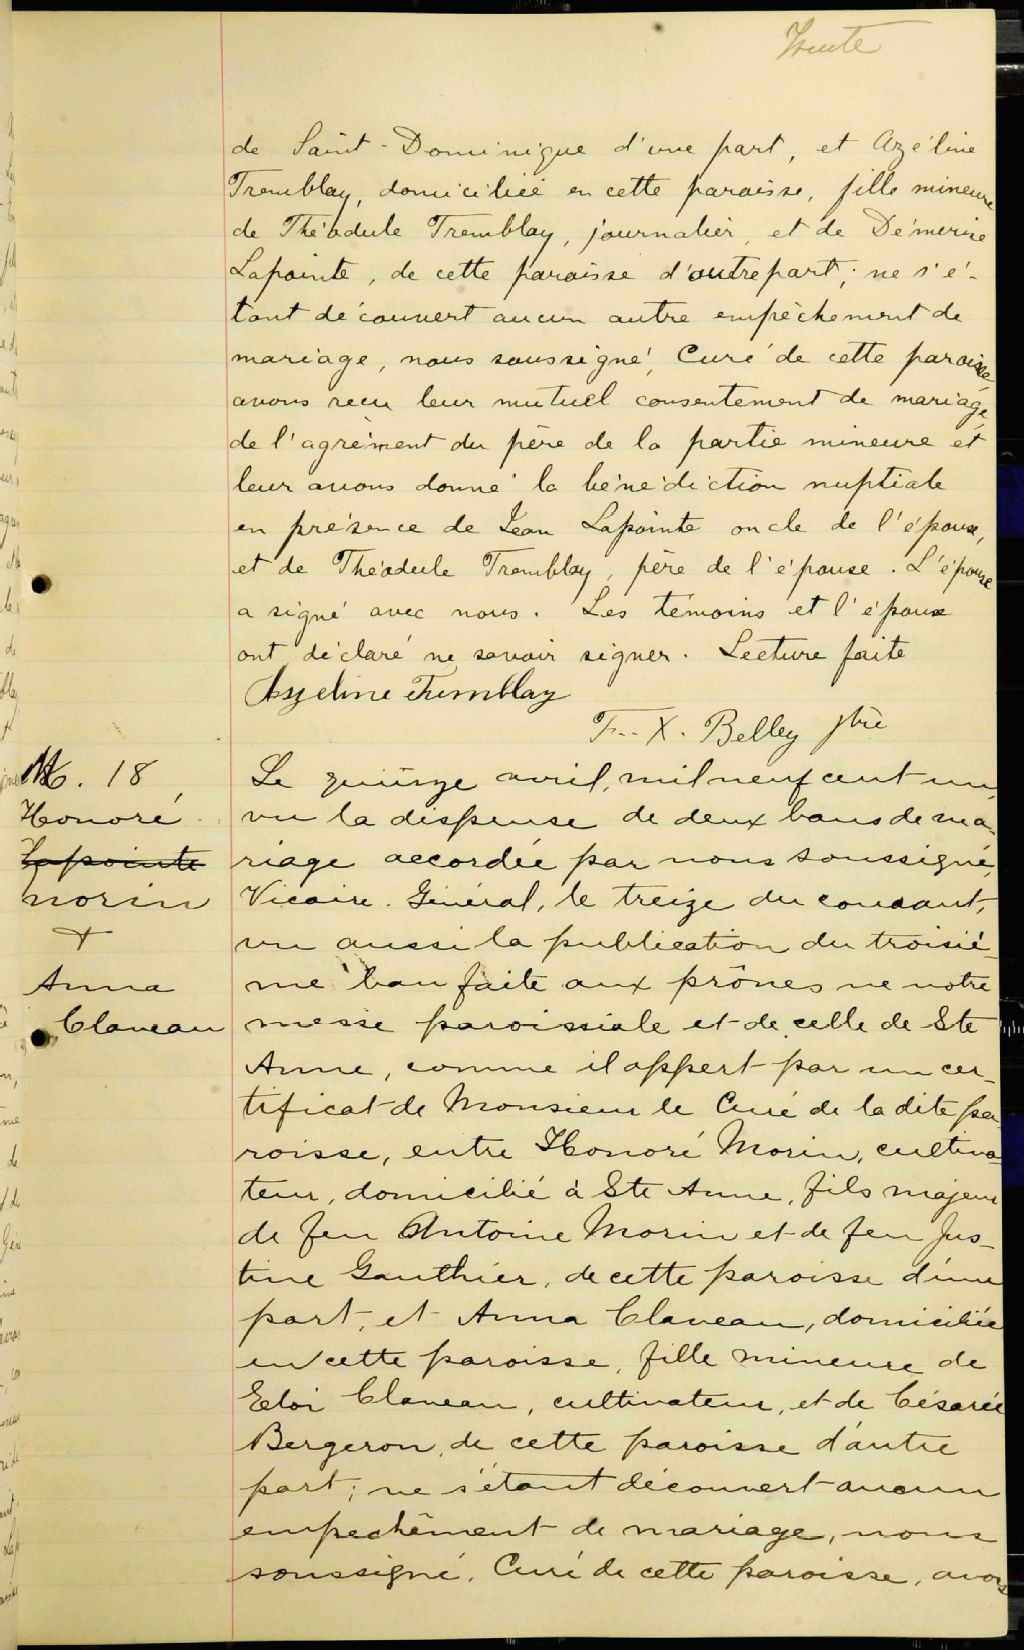 Trente
de Saint-Dominique d'une part, et Azéline
Tremblay, domiciliée en cette paroisse, fille mineure
de Théodule Tremblay, journalier, et de Démerise
Lapointe, de cette paroisse d'autre part; ne s'é-
tant découvert aucun autre empêchement de
mariage, nous soussigné, Curé de cette paroisse
avons reçu leur mutuel consentement de mariage,
de l'agrément du père de la partie mineure et
leur avons donné la bénédiction nuptiale
en présence de Jean Lapointe oncle de l'époux,
et de Théodule Tremblay, père de l'épouse. L'épouse
a signé avec nous. Les témoins et l'époux
ont déclaré ne savoir signer. Lecture faite
Azeline Tremblay
F.-X. Belley ptre
M. 18
Honoré
Lapointe
Morin
+
Anna
Claveau
Le quinze avril, mil neuf cent un,
vu la dispense de deux bans de ma-
riage accordée par nous soussigné,
Vicaire-Général, le treize du courant,
vu aussi la publication du troisiè-
me ban faite aux prônes ne notre
messe paroissiale et de celle de Ste
Anne, comme il appert par un cer-
tificat de Monsieur le Curé de la dite pa-
roisse, entre Honoré Morin, cultiva-
teur, domicilié à Ste Anne, fils majeur
de feu Antoine Morin et de feu Jus-
tine Gauthier, de cette paroisse d'une
part, et Anna Claveau, domiciliée
en cette paroisse, fille mineure de
Eloi Claveau, cultivateur, et de Césarée
Bergeron, de cette paroisse d'autre
part; ne s'étant découvert aucun
empechêment de mariage, nous
soussigné, Curé de cette paroisse, avons